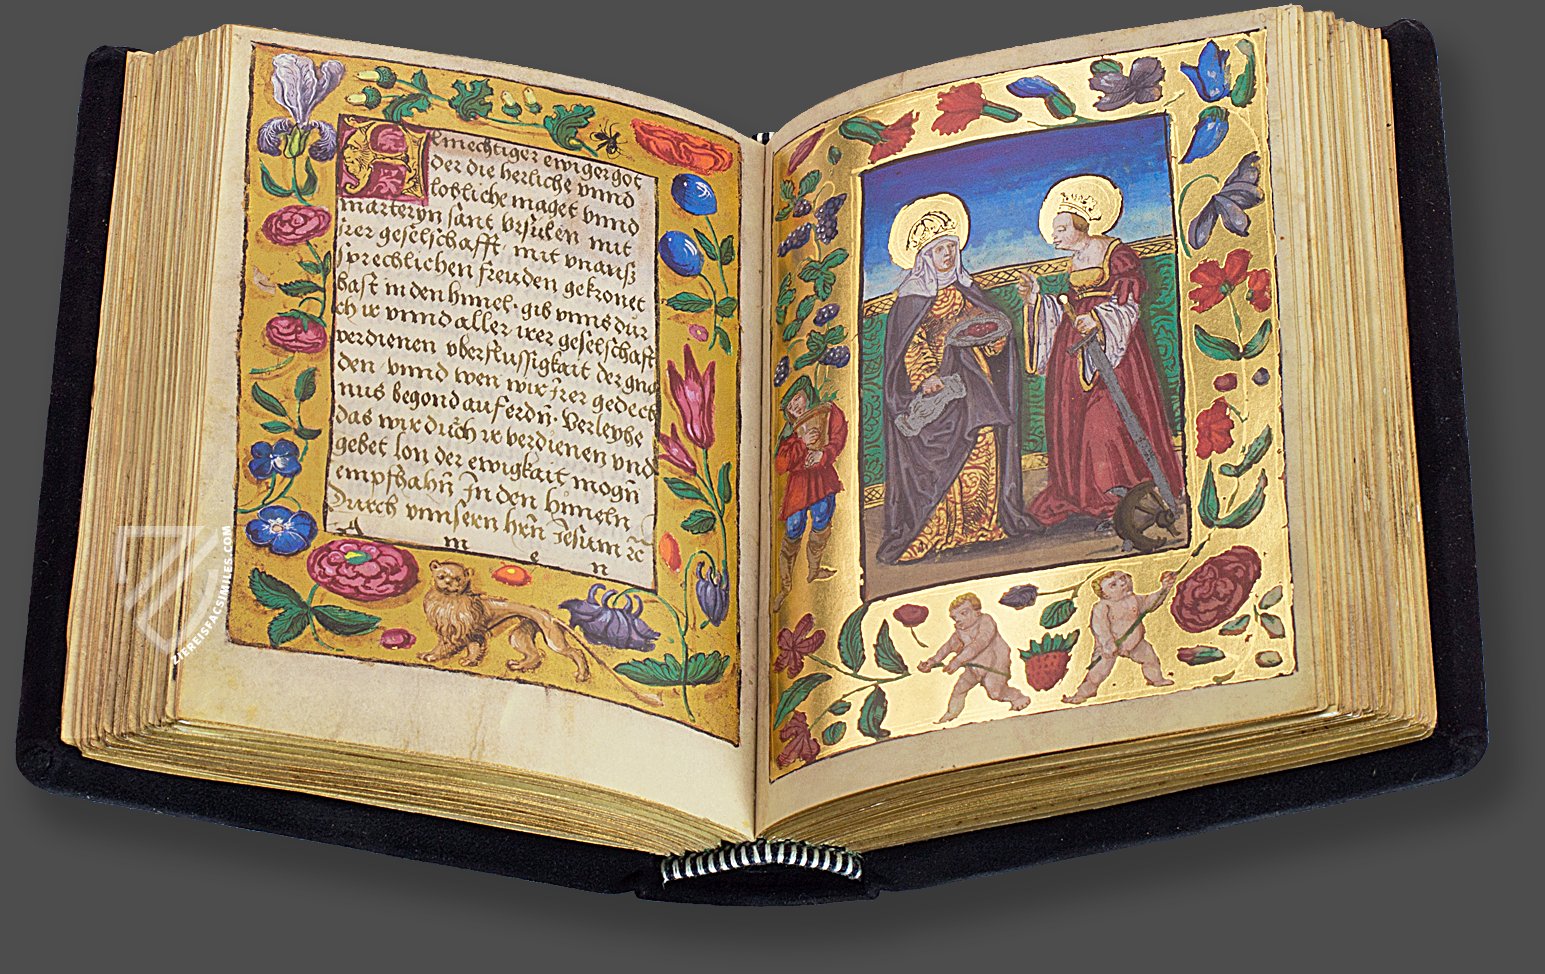 Almechtiger ewiger got
der die herliche vnnd
lobliche maget vnnd
marteryn sant vrsulen mit
irer geselschafft mit vnauß
sprechlichen freuden gekronet
hast in den himel. gib vnns dur
ch ir vnnd aller irer geselschafft
verdienen vberflussigkait der gna
den vnnd wen wir Irer gedech
nus begond auf erdn̄. Verleyhe
das wir durch ir verdienen vnd
gebet lon der ewigkait mogn̄
empfhahn̄ In den himeln
Durch vnnseren hern̄ Jesum
A m e n
ZIEREISFACSIMILES.COM